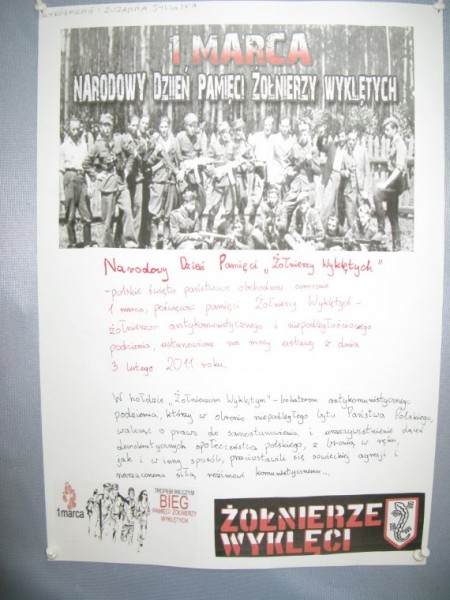 1 MARCA
NARODOWY DZIEŃ PAMIĘCI ŻOŁNIERZY WYKLĘTYCH
Narodowy Dzień Pamięci „Żołnierzy Wyklętych"
- polskie święto państwowe obchodzone corocznie
1 marca, poświęcone pamięci Żołnierzy Wyklętych -
żołnierzom antykomunistycznego i niepodległościowego
podziemia, ustanowione na mocy ustawy z dnia
3 lutego 2011 roku.
W hołdzie „Żołnierzom Wyklętym" - bohaterom antykomunistycznego
podziemia, którzy w obronie niepodległego bytu Państwa Polskiego,
walcząc o prawo do samostanowienia i urzeczywistnienie dążeń
demokratycznych społeczeństwa polskiego, z bronią w ręku,
jak i w inny sposób, przeciwstawili się sowieckiej agresji i
narzuconemu siłą reżimowi komunistycznemu...
1 marca
TROPEM WILCZYM
BIEG
PAMIĘCI ŻOŁNIERZY
WYKLĘTYCH
ŻOŁNIERZE
WYKLĘCI